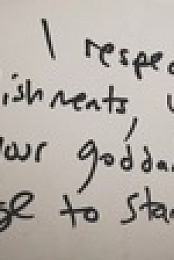 I respec
ishments,
your goddam
ge to star